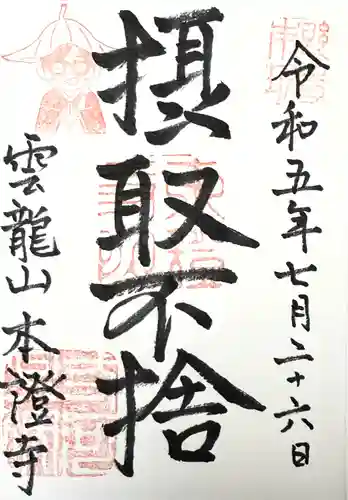 令和五年七月二十六日
摂取不捨
雲龍山本證寺